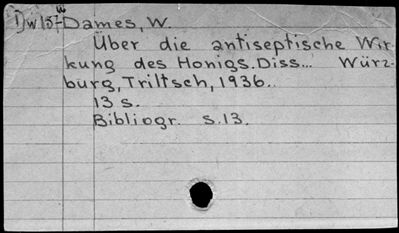 Dames, W.
Über die antiseptische Wir-
kung des Honigs. Diss... Würz-
burg, Triltsch, 1936.
13 s.
Bibliogr. s.13.